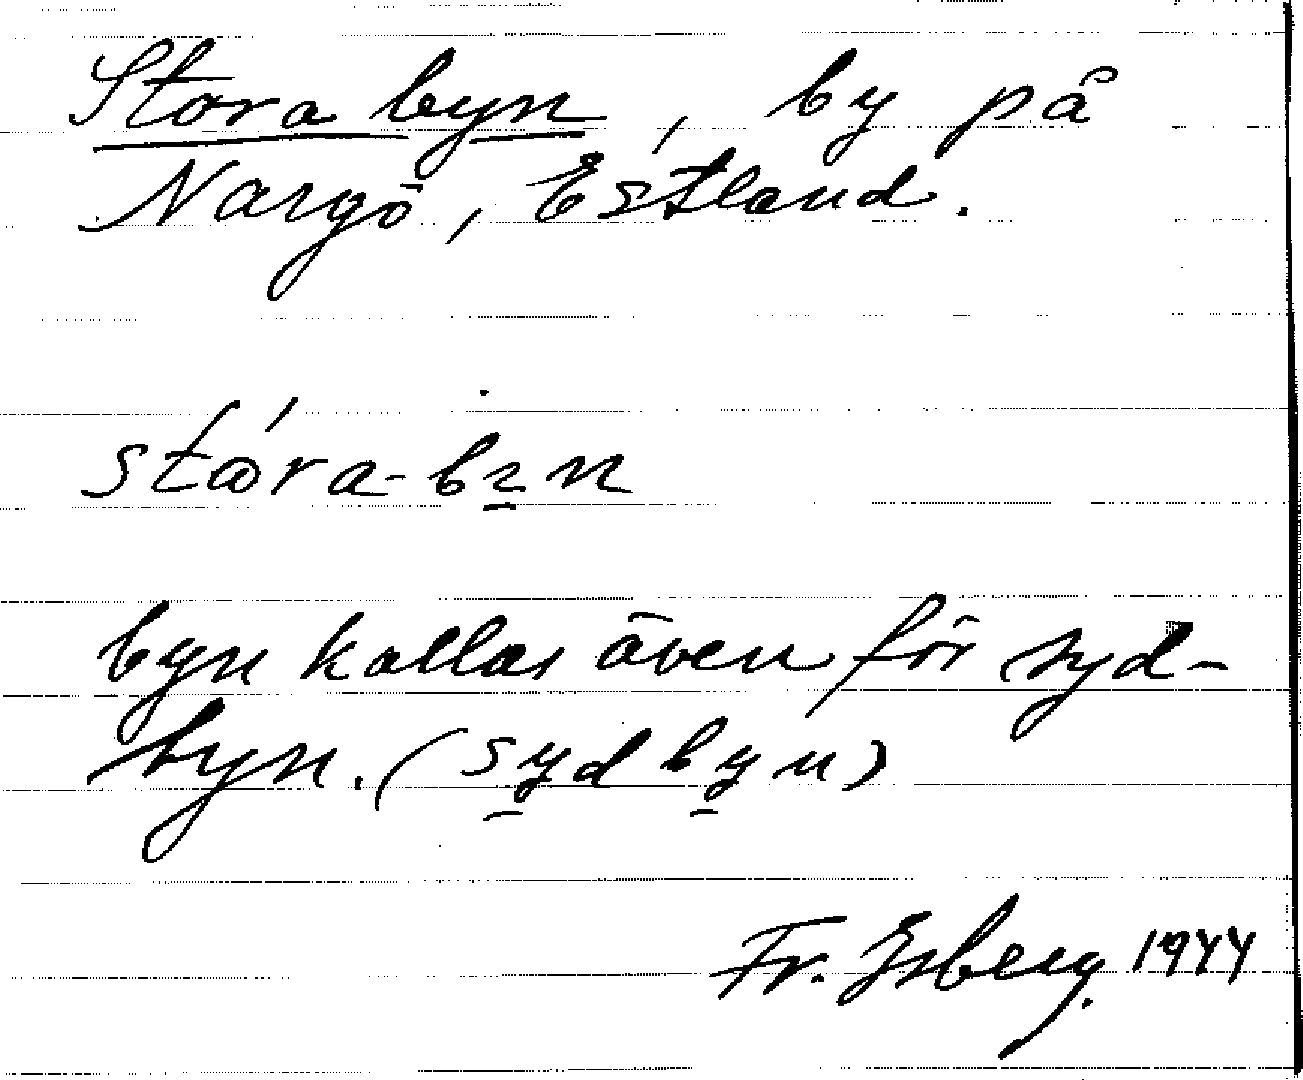 Stora byn, by på
Nargö, Estland.
stɷ́ra-bı̲n
byn kallas även för syd-
byn. (sy̲dby̲n)
Fr. Isberg. 1944